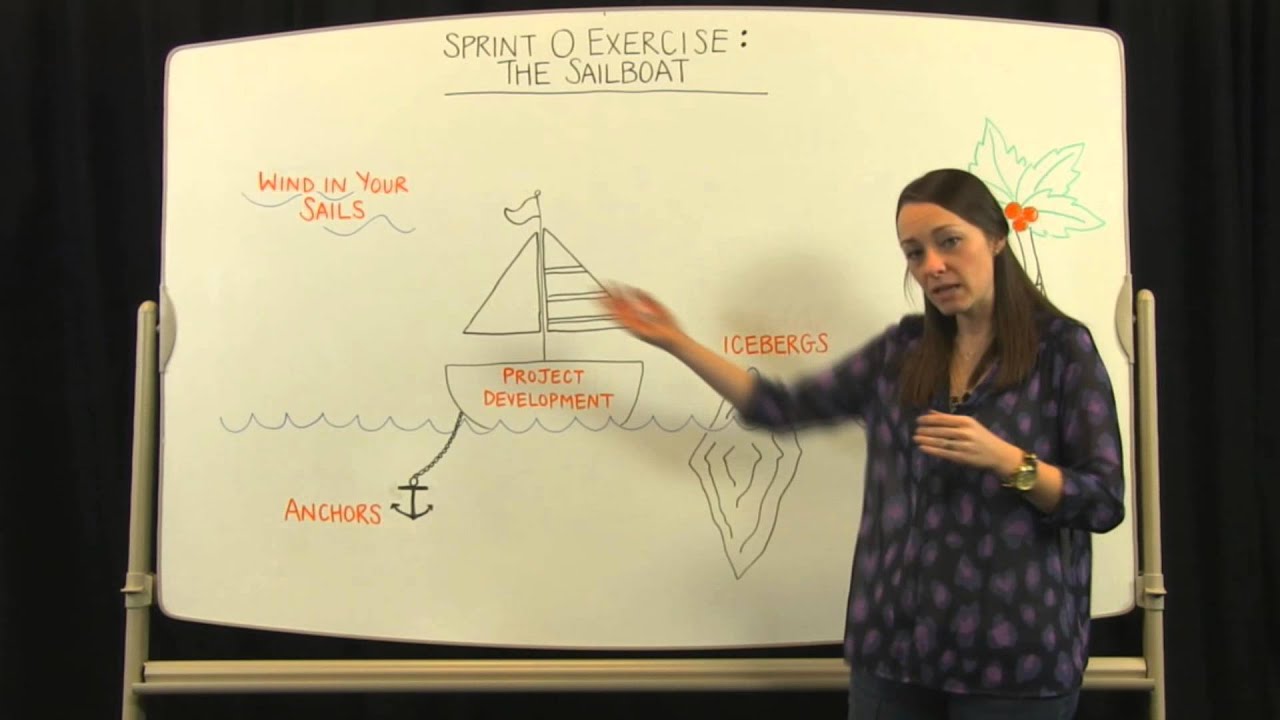 SPRINT 0 EXERCISE:
THE SAILBOAT
WIND IN YOUR
SAILS
ICEBERGS
PROJECT
DEVELOPMENT
ANCHORS